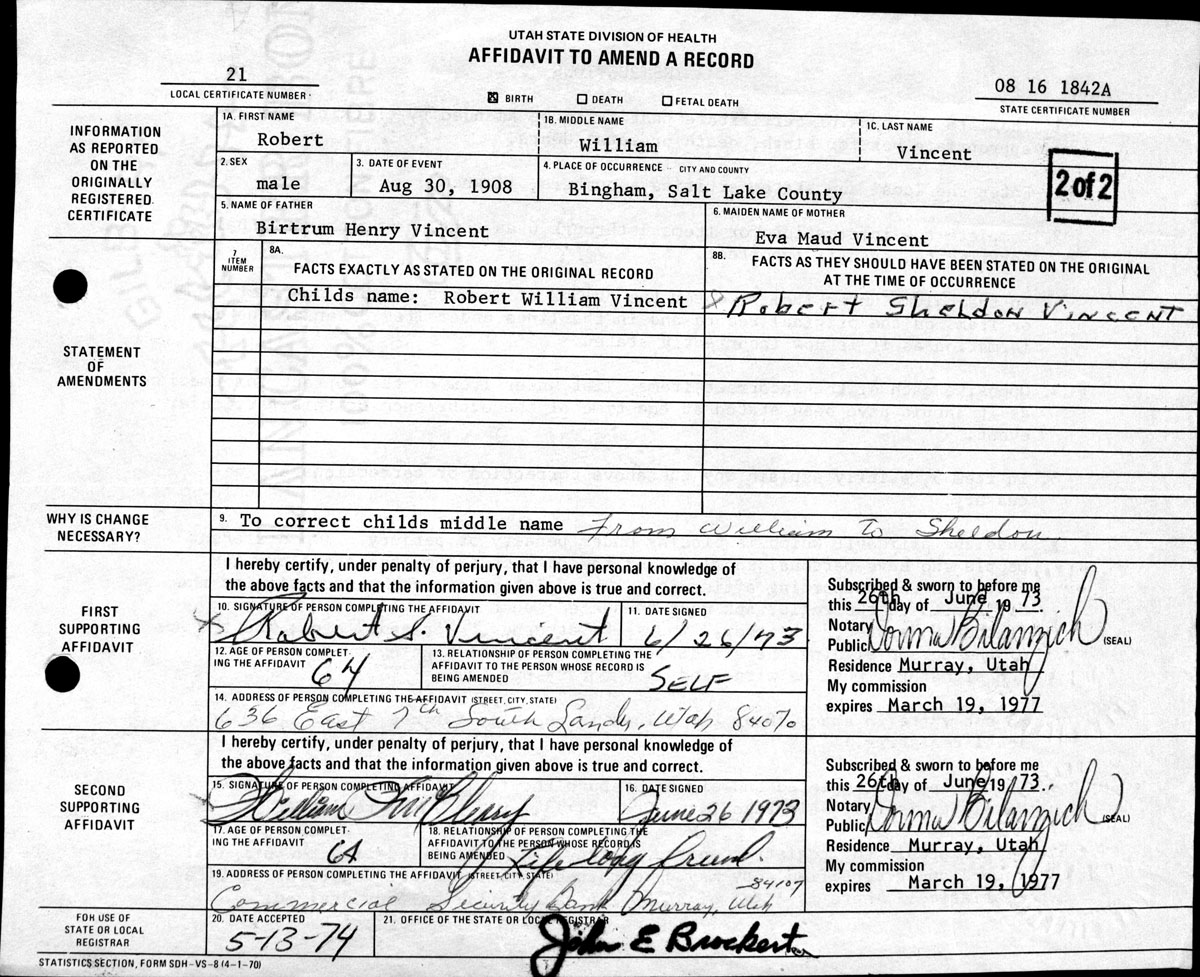 UTAH STATE DIVISION OF HEALTH
AFFIDAVIT TO AMEND A RECORD
21
LOCAL CERTIFICATE NUMBER
☒ BIRTH ☐ DEATH ☐ FETAL DEATH
08 16 1842A
STATE CERTIFICATE NUMBER
INFORMATION
AS REPORTED
ON THE
ORIGINALLY
REGISTERED
CERTIFICATE
1A. FIRST NAME
Robert
1B. MIDDLE NAME
William
1C. LAST NAME
Vincent
2. SEX
male
3. DATE OF EVENT
Aug 30, 1908
4. PLACE OF OCCURRENCE -- CITY AND COUNTY
Bingham, Salt Lake County
2 of 2
5. NAME OF FATHER
Birtrum Henry Vincent
6. MAIDEN NAME OF MOTHER
Eva Maud Vincent
STATEMENT
OF
AMENDMENTS
7
ITEM
NUMBER
8A.
FACTS EXACTLY AS STATED ON THE ORIGINAL RECORD
8B.
FACTS AS THEY SHOULD HAVE BEEN STATED ON THE ORIGINAL
AT THE TIME OF OCCURRENCE
Childs name: Robert William Vincent
Robert Sheldon Vincent
WHY IS CHANGE
NECESSARY?
9. To correct childs middle name From William To Sheldon
FIRST
SUPPORTING
AFFIDAVIT
I hereby certify, under penalty of perjury, that I have personal knowledge of
the above facts and that the information given above is true and correct.
10. SIGNATURE OF PERSON COMPLETING THE AFFIDAVIT
Robert S. Vincent
11. DATE SIGNED
6/26/73
12. AGE OF PERSON COMPLET-
ING THE AFFIDAVIT
64
13. RELATIONSHIP OF PERSON COMPLETING THE
AFFIDAVIT TO THE PERSON WHOSE RECORD IS
BEING AMENDED
SELF
14. ADDRESS OF PERSON COMPLETING THE AFFIDAVIT (STREET, CITY, STATE)
636 East 7th South Sandy, Utah 84070
Subscribed & sworn to before me
this 26th day of June 19 73.
Notary
Public Dorma Bilanzich (SEAL)
Residence Murray, Utah
My commission
expires March 19, 1977
SECOND
SUPPORTING
AFFIDAVIT
I hereby certify, under penalty of perjury, that I have personal knowledge of
the above facts and that the information given above is true and correct.
15. SIGNATURE OF PERSON COMPLETING AFFIDAVIT
William
16. DATE SIGNED
June 26 1973
17. AGE OF PERSON COMPLET-
ING THE AFFIDAVIT
64
18. RELATIONSHIP OF PERSON COMPLETING THE
AFFIDAVIT TO THE PERSON WHOSE RECORD IS
BEING AMENDED
Life long friend.
19. ADDRESS OF PERSON COMPLETING THE AFFIDAVIT (STREET, CITY, STATE)
Commercial Security Bank Murray, Utah 84107
Subscribed & sworn to before me
this 26th day of June 19 73.
Notary
Public Dorma Bilanzich (SEAL)
Residence Murray, Utah
My commission
expires March 19, 1977
FOR USE OF
STATE OR LOCAL
REGISTRAR
20. DATE ACCEPTED
5-13-74
21. OFFICE OF THE STATE OR LOCAL REGISTRAR
John E Brockert
STATISTICS SECTION, FORM SDH-VS-8 (4-1-70)